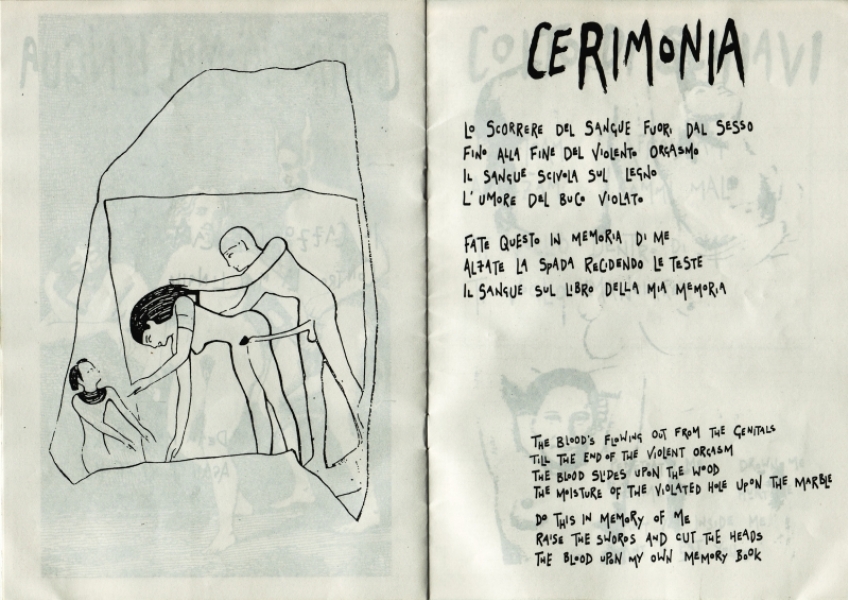 CERIMONIA
LO SCORRERE DEL SANGUE FUORI DAL SESSO
FINO ALLA FINE DEL VIOLENTO ORGASMO
IL SANGUE SCIVOLA SUL LEGNO
L'UMORE DEL BUCO VIOLATO
FATE QUESTO IN MEMORIA DI ME
ALZATE LA SPADA RECIDENDO LE TESTE
IL SANGUE SUL LIBRO DELLA MIA MEMORIA
THE BLOOD'S FLOWING OUT FROM THE GENITALS
TILL THE END OF THE VIOLENT ORGASM
THE BLOOD SLIDES UPON THE WOOD
THE MOISTURE OF THE VIOLATED HOLE UPON THE MARBLE
DO THIS IN MEMORY OF ME
RAISE THE SWORDS AND CUT THE HEADS
THE BLOOD UPON MY OWN MEMORY BOOK